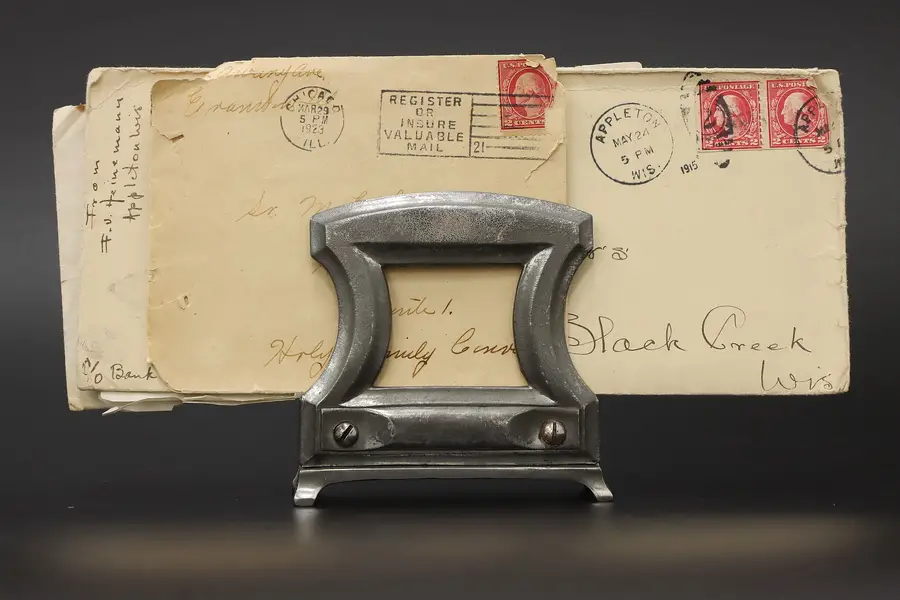 From
F.J. Heinemann
Appleton Wis
c/o Bank
CHICAGO
MAR 29
5 PM
1923
ILL.
REGISTER
OR
INSURE
VALUABLE
MAIL
21
U.S. POST
2 CENTS 2
Sr. M.
Route 1.
Holy Family Conv
APPLETON
MAY 24
5 PM
1915
WIS.
U.S. POSTAGE
2 CENTS 2
U.S. POST
2 CENTS 2
Black Creek
Wis